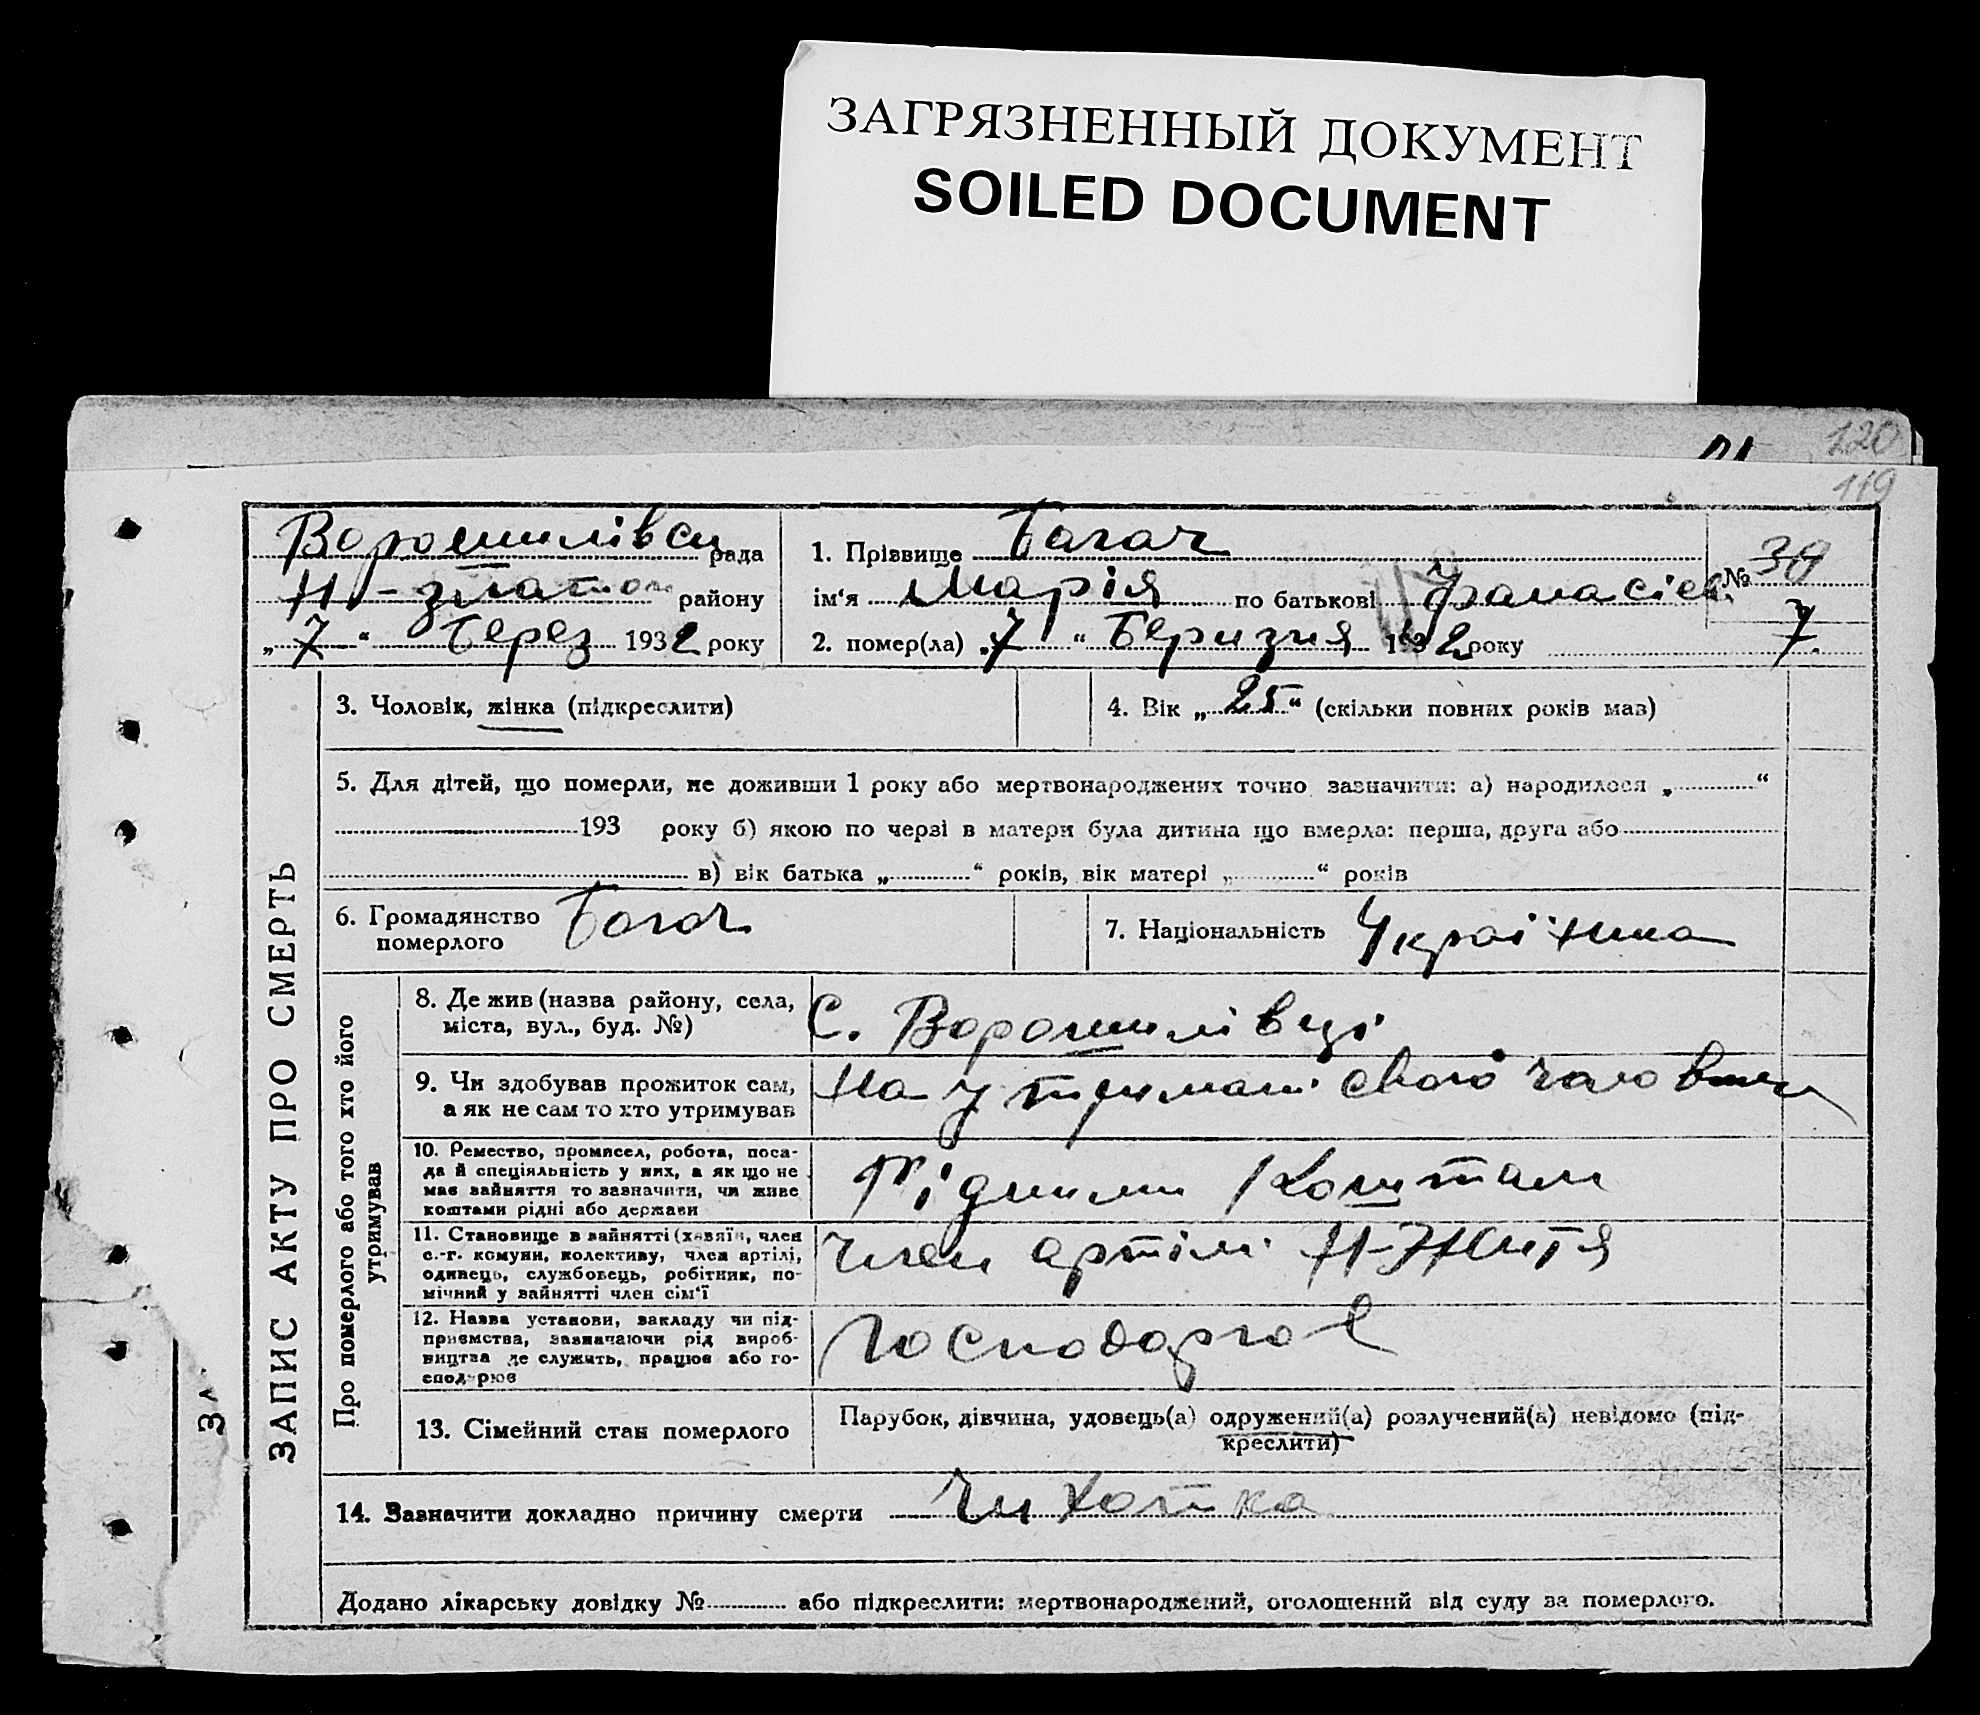 ЗАГРЯЗНЕННЫЙ ДОКУМЕНТ
SOILED DOCUMENT
120
119
Ворошилівск рада
Н-златоп району
„7“ Берез 1932 року
1. Прізвище Багач
ім‘я Марія по батькові Фанасієв
2. помер(ла) „7“ Беризня 1932 року
№ 30
7.
ЗАПИС АКТУ ПРО СМЕРТЬ
3. Чоловік, жінка (підкреслити)
4. Вік „25“ (скільки повних років мав)
5. Для дітей, що померли, не доживши 1 року або мертвонароджених точно зазначити: а) народилося „ “
193 року б) якою по черзі в матери була дитина що вмерла: перша, друга або
в) вік батька „ “ років, вік матері „ “ років
6. Громадянство
померлого
Багач
7. Національність Українка
Про померлого або того хто його
утримував
8. Де жив (назва району, села,
міста, вул., буд. №)
С. Ворошилівці
9. Чи здобував прожиток сам,
а як не сам то хто утримував
На утримані свого чоловика
10. Ремество, промисел, робота, поса-
да й спеціяльність у них, а як що не
має зайняття то зазначити, чи живе
коштами рідні або держави
Рідними Коштами
11. Становище в зайнятті (хазяїн, член
с.-г. комуни, колективу, член артілі,
одинець, службовець, робітник, по-
мічний у зайнятті член сім‘ї
Член артілі Н-Життя
12. Назва установи, закладу чи під-
приємства, зазначаючи рід вироб-
ництва де служить, працює або го-
сподарює
Господарює
13. Сімейний стан померлого
Парубок, дівчина, удовець(а) одружений(а) розлучений(а) невідомо (під-
креслити)
14. Зазначити докладно причину смерти Чихотка
Додано лікарську довідку № або підкреслити: мертвонароджений, оголошений від суду за померлого.